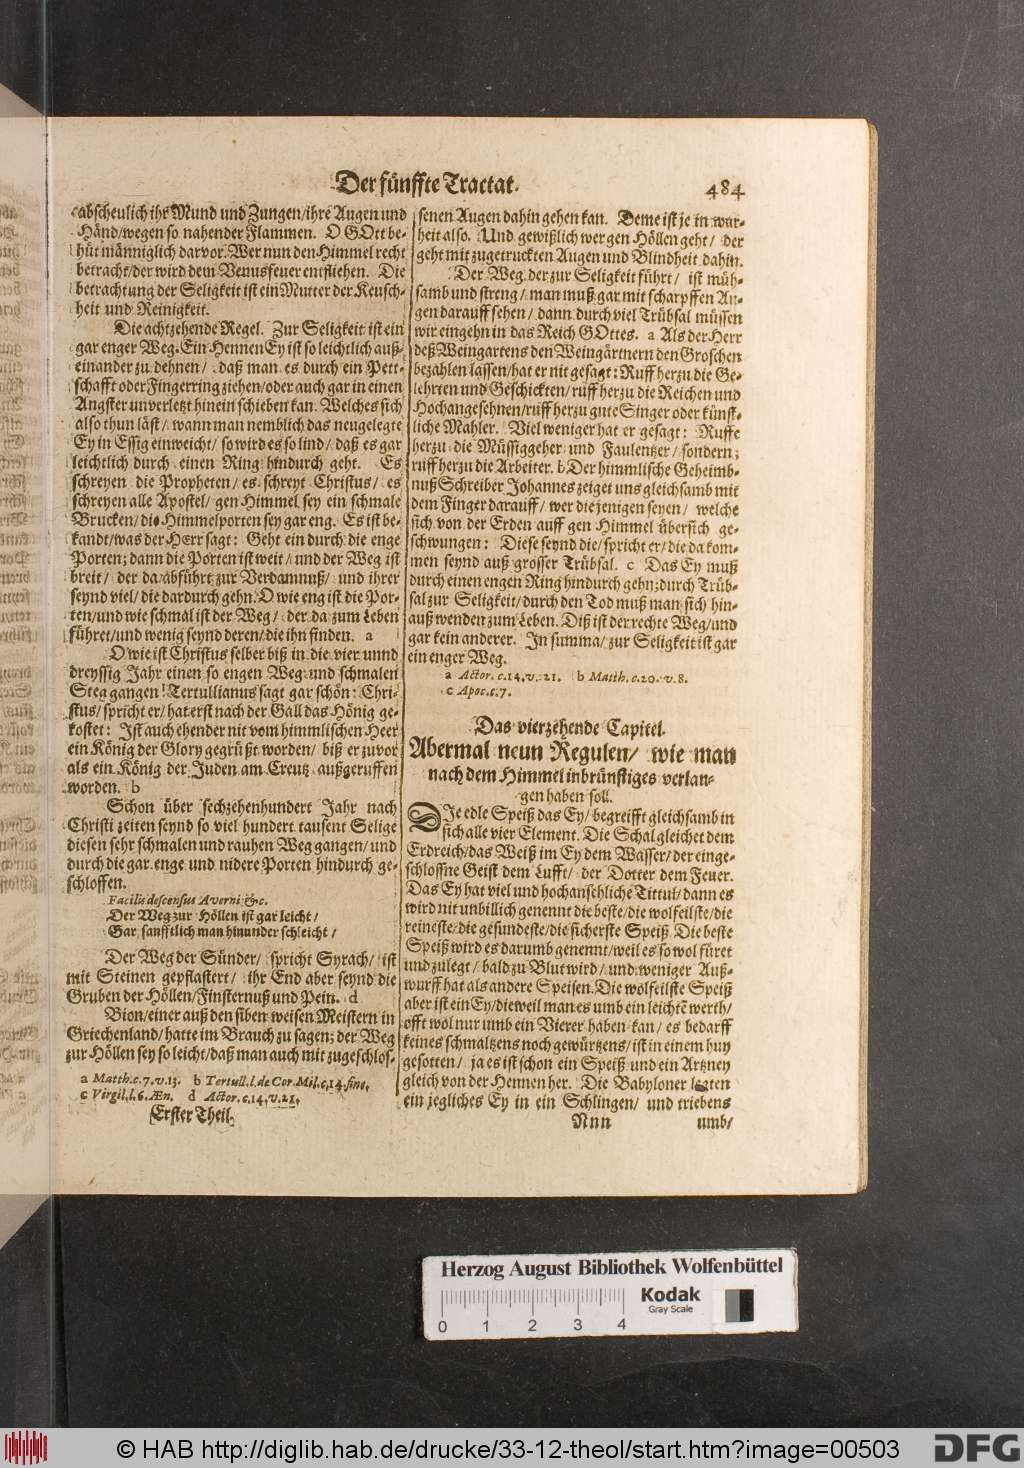 Der fünffte Tractat.
484
abscheulich ihr Mund und Zungen/ihre Augen und
Händ/wegen so nahender Flammen. O GOtt be-
hüt männiglich darvor. Wer nun den Himmel recht
betracht/der wird dem Venusfeuer entfliehen. Die
betrachtung der Seligkeit ist ein Mutter der Keusch-
heit und Reinigkeit.
Die achtzehende Regel. Zur Seligkeit ist ein
gar enger Weg. Ein Hennen Ey ist so leichtlich auß-
einander zu dehnen/ daß man es durch ein Pett-
schafft oder Fingerring ziehen/oder auch gar in einen
Angster unverletzt hinein schieben kan. Welches sich
also thun läst/ wann man nemblich das neugelegte
Ey in Essig einweicht/ so wird es so lind/ daß es gar
leichtlich durch einen Ring hindurch geht. Es
schreyen die Propheten/ es schreyt Christus/ es
schreyen alle Apostel/ gen Himmel sey ein schmale
Brucken/ die Himmelporten sey gar eng. Es ist be-
kandt/was der HErr sagt: Geht ein durch die enge
Porten; dann die Porten ist weit/ und der Weg ist
breit/ der da abführt zur Verdamnuß/ und ihrer
seynd viel/ die dardurch gehn. O wie eng ist die Por-
ten/und wie schmal ist der Weg/ der da zum Leben
führet/und wenig seynd deren/die ihn finden. a
O wie ist Christus selber biß in die vier unnd
dreyssig Jahr einen so engen Weg und schmalen
Steg gangen! Tertullianus sagt gar schön: Chri-
stus/ spricht er/ hat erst nach der Gall das Hönig ge-
kostet: Ist auch ehender nit vom himmlischen Heer
ein König der Glory gegrüßt worden/ biß er zuvor
als ein König der Juden am Creutz außgeruffen
worden. b
Schon über sechzehenhundert Jahr nach
Christi zeiten seynd so viel hundert tausent Selige
diesen sehr schmalen und rauhen Weg gangen/ und
durch die gar enge und nidere Porten hindurch ge-
schloffen.
Facilis descensus Averni &c.
Der Weg zur Höllen ist gar leicht/
Gar sanfftlich man hinunder schleicht/
Der Weg der Sünder/ spricht Syrach/ ist
mit Steinen gepflastert/ ihr End aber seynd die
Gruben der Höllen/Finsternuß und Pein. d
Bion/einer auß den siben weisen Meistern in
Griechenland/hatte im Brauch zu sagen; der Weg
zur Höllen sey so leicht/daß man auch mit zugeschlos-
a Matth. c. 7. v. 13. b Tertull. l. de Cor. Mil. c. 14. fine.
c Virgil. l. 6. Æn. d Actor. c. 14. v. 21.
Erster Theil.
senen Augen dahin gehen kan. Deme ist je in war-
heit also. Und gewißlich wer gen Höllen geht/ der
geht mit zugetruckten Augen und Blindheit dahin.
Der Weg der zur Seligkeit führt/ ist müh-
samb und streng/ man muß gar mit scharpffen Au-
gen darauff sehen/ dann durch viel Trübsal müssen
wir eingehn in das Reich GOttes. a Als der Herr
deß Weingartens den Weingärtnern den Groschen
bezahlen lassen/hat er nit gesagt: Ruff herzu die Ge-
lehrten und Geschickten/ ruff herzu die Reichen und
Hochangesehnen/ruff herzu gute Singer oder künst-
liche Mahler. Viel weniger hat er gesagt: Ruffe
herzu die Müssiggeher und Faulentzer/ sondern;
ruff herzu die Arbeiter. b Der himmlische Geheimb-
nuß Schreiber Johannes zeiget uns gleichsamb mit
dem Finger darauff/ wer die jenigen seyen/ welche
sich von der Erden auff gen Himmel übersich ge-
schwungen: Diese seynd die/ spricht er/ die da kom-
men seynd auß grosser Trübsal. c Das Ey muß
durch einen engen Ring hindurch gehn; durch Trüb-
sal zur Seligkeit/ durch den Tod muß man sich hin-
auß wenden zum Leben. Diß ist der rechte Weg/und
gar kein anderer. In summa/ zur Seligkeit ist gar
ein enger Weg.
a Actor. c. 14. v. 21. b Matth. c. 20. v. 8.
c Apoc. c. 7.
Das vierzehende Capitel.
Abermal neun Regulen/ wie man
nach dem Himmel inbrünstiges verlan-
gen haben soll.
DIe edle Speiß das Ey/ begreifft gleichsamb in
sich alle vier Element. Die Schal gleichet dem
Erdreich/das Weiß im Ey dem Wasser/ der einge-
schloßne Geist dem Lufft/ der Dotter dem Feuer.
Das Ey hat viel und hochansehliche Tittul/ dann es
wird nit unbillich genennt die beste/die wolfeilste/die
reineste/die gesundeste/die sicherste Speiß. Die beste
Speiß wird es darumb genennt/weil es so wol füret
und zulegt/ bald zu Blut wird/ und weniger Auß-
wurff hat als andere Speisen. Die wolfeilste Speiß
aber ist ein Ey/dieweil man es umb ein leichtẽ werth/
offt wol nur umb ein Vierer haben kan/ es bedarff
keines schmaltzens noch gewürtzens/ist in einem huy
gesotten/ ja es ist schon ein Speiß und ein Artzney
gleich von der Hennen her. Die Babyloner legten
ein jegliches Ey in ein Schlingen/ und triebens
Nnn
umb/
Herzog August Bibliothek Wolfenbüttel
Kodak
Gray Scale
0 1 2 3 4
© HAB http://diglib.hab.de/drucke/33-12-theol/start.htm?image=00503
DFG